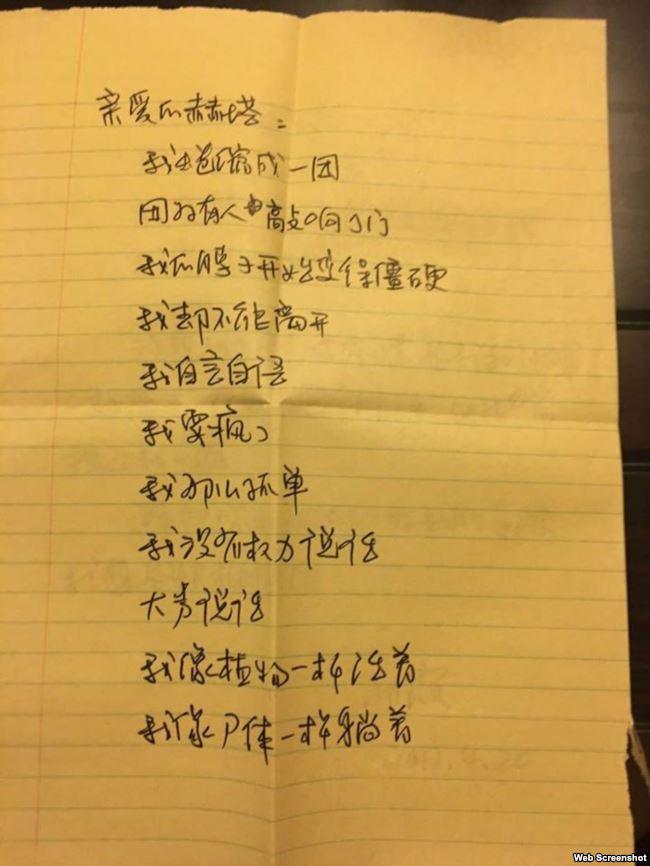 亲爱的赫塔：
我蜷缩成一团
因为有人敲响了门
我的脖子开始变得僵硬
我却不能离开
我自言自语
我要疯了
我那么孤单
我没有权力说话
大声说话
我像植物一样活着
我像尸体一样躺着
Web Screenshot